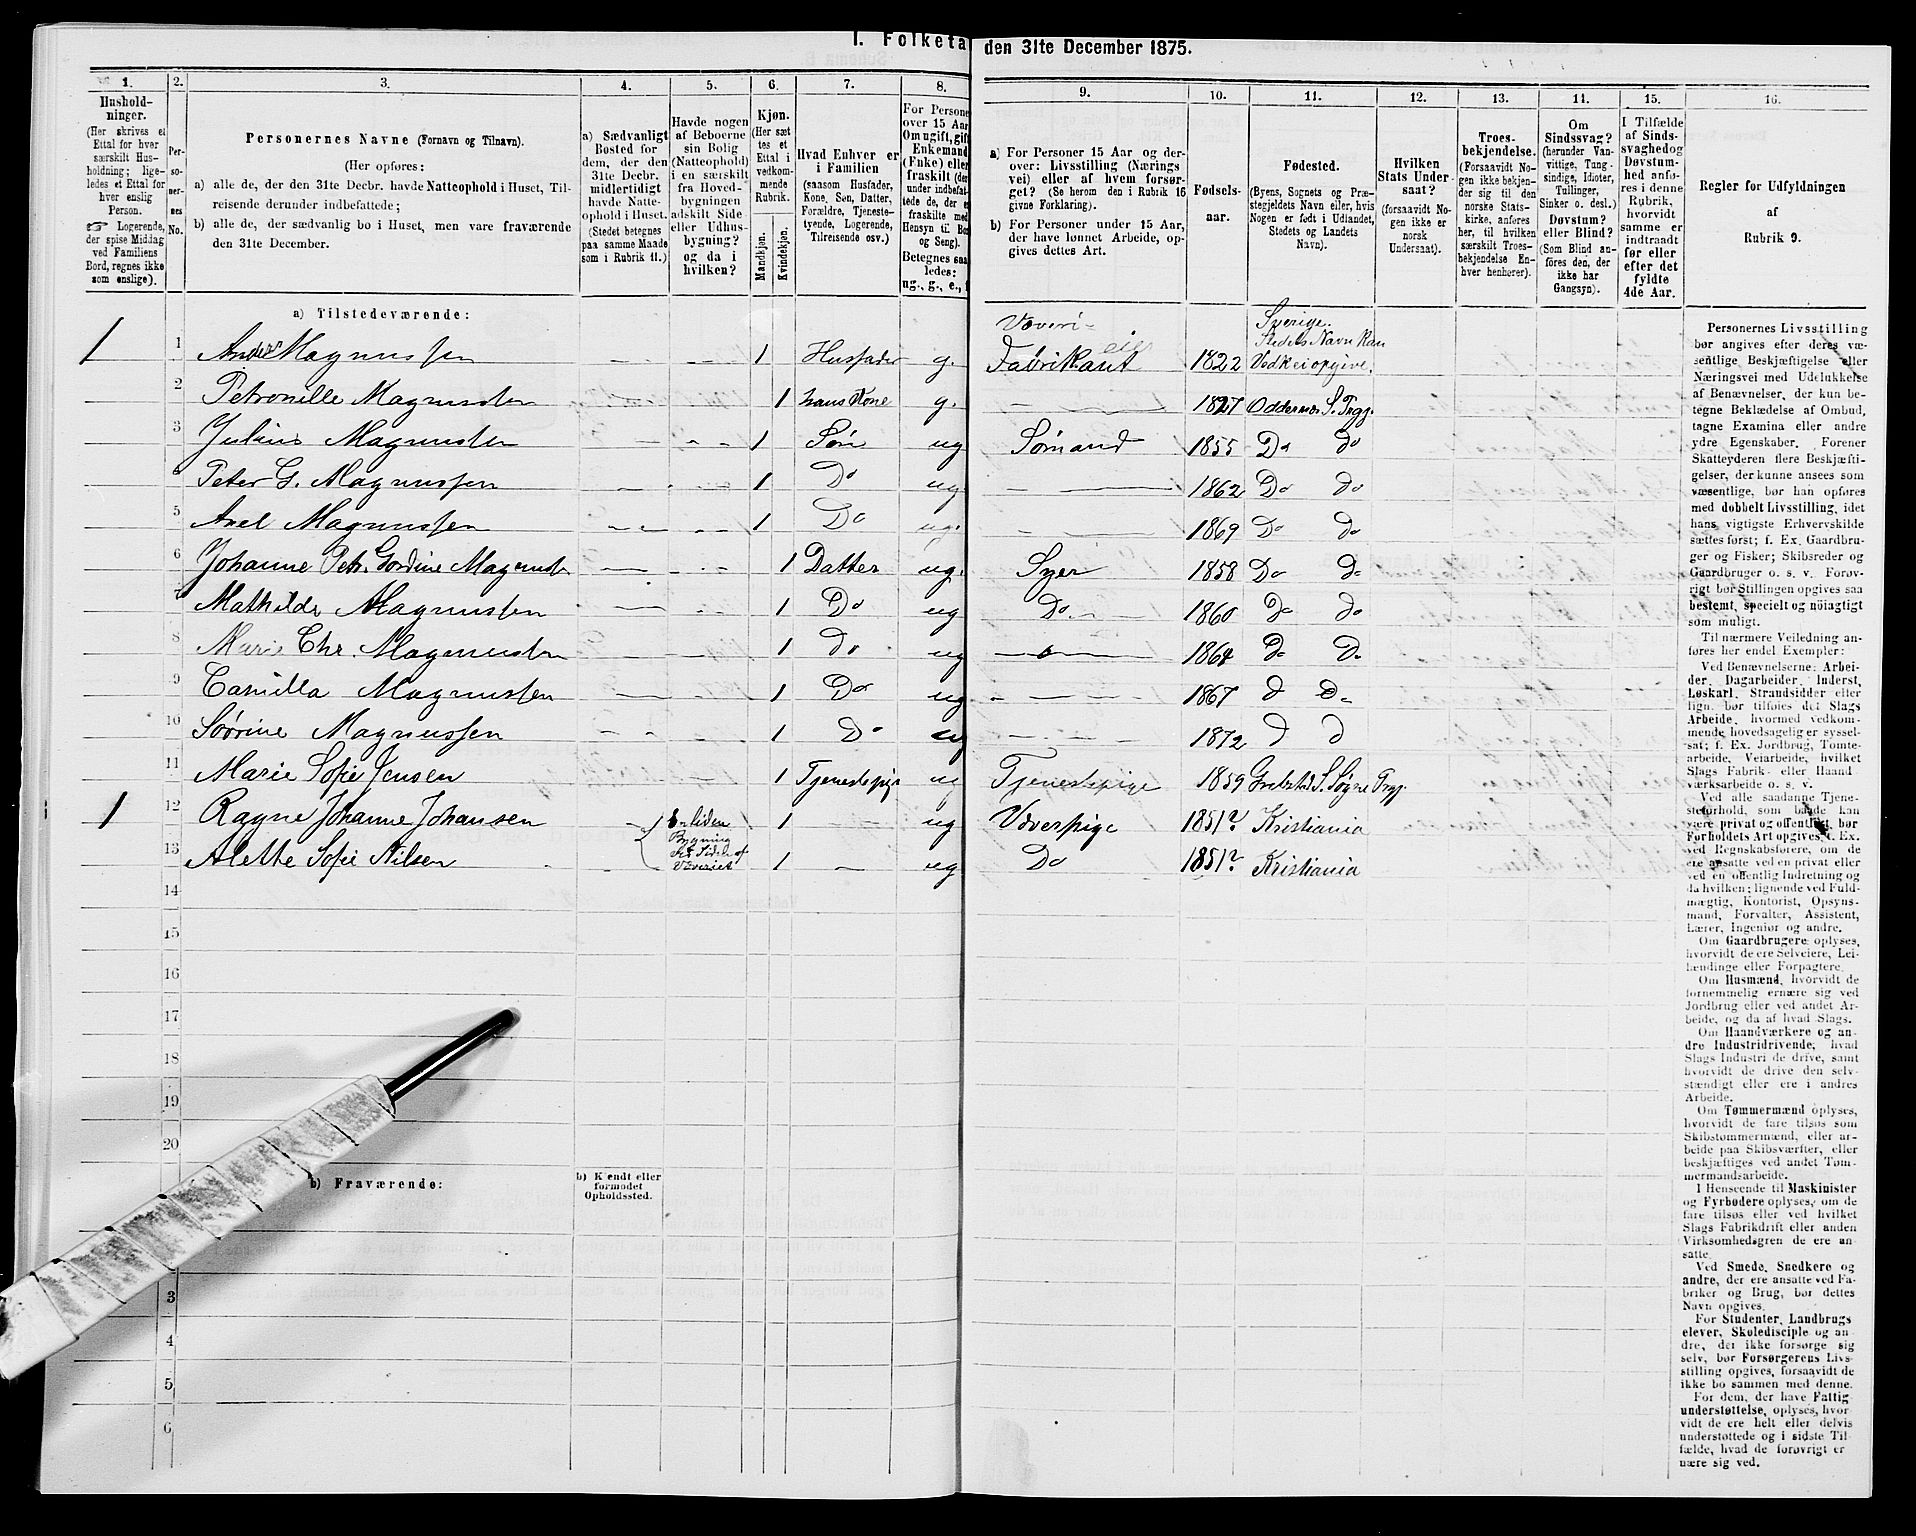 I. Folketæ den 31te December 1875.
1. 2. 3. 4. 5. 6. 7. 8. 9. 10. 11. 12. 13. 14. 15. 16.
Hushold-
ninger.
(Her skrives et
Ettal for hver
særskilt Hus-
holdning; lige-
ledes et Ettal for
hver enslig
Person.
☞ Logerende,
der spise Middag
ved Familiens
Bord, regnes ikke
som enslige).
Per-
so-
ner-
nes
No.
Personernes Navne (Fornavn og Tilnavn).
(Her opføres:
a) alle de, der den 31te Decbr. havde Natteophold i Huset, Til-
reisende derunder indbefattede;
b) alle de, der sædvanlig bo i Huset, men vare fraværende
den 31te December.
a) Sædvanligt
Bosted for
dem, der den
31te Decbr.
midlertidigt
havde Natte-
ophold i Huset.
(Stedet betegnes
paa samme Maade
som i Rubrik 11.)
Havde nogen
af Beboerne
sin Bolig
(Natteophold)
i en særskilt
fra Hoved-
bygningen
adskilt Side-
eller Udhus-
bygning?
og da i
hvilken?
Kjøn.
(Her sæt
tes et
Ettal i
vedkom-
mende
Rubrik.
Mandkjøn.
Kvindekjøn.
Hvad Enhver er
i Familien
(saasom Husfader,
Kone, Søn, Datter,
Forældre, Tjeneste-
tyende, Logerende,
Tilreisende osv.)
For Persone
over 15 Aar
Om ugift, gift
Enkemand
(Enke) eller
fraskilt (der
under indbefat-
tede de, der e
fraskilte med
Hensyn til Bo
og Seng).
Betegnes saa
ledes:
ug., g., e., f
a) For Personer 15 Aar og der-
over: Livsstilling (Nærings
vei) eller af hvem forsør-
get? (Se herom den i Rubrik 16
givne Forklaring).
b) For Personer under 15 Aar,
der have lønnet Arbeide, op-
gives dettes Art.
Fødsels-
aar.
Fødested.
(Byens, Sognets og Præ-
stegjeldets Navn eller, hvis
Nogen er født i Udlandet,
Stedets og Landets
Navn).
Hvilken
Stats Under-
saat?
(forsaavidt No-
gen ikke er
norsk
Undersaat).
Troes-
bekjendelse.
(Forsaavidt No-
gen ikke bekjen-
der sig til den
norske Stats-
kirke, anføres
her, til hvilken
særskilt Troes-
bekjendelse En-
hver henhører).
Om
Sindssvag?
(herunder Van-
vittige, Tung-
sindige, Idioter,
Tullinger,
Sinker o. desl.)
Døvstum?
eller Blind?
(Som Blind an-
føres den, der
ikke har
Gangsyn).
I Tilfælde
af Sinds-
svaghed og
Døvstum-
hed anfø-
res i denne
Rubrik,
hvorvidt
samme er
indtraadt
før eller
efter det
fyldte
4de Aar.
Regler for Udfyldningen
af
Rubrik 9.
a) Tilstedeværende:
1 1 Anders Magnussen 1 Husfader g. Væveri-eier Fabrikant 1822 Sverige. Stedets Navn kan Ved kei opgive.
2 Petronelle Magnussen 1 hans Kone g. 1827 Oddernæs S. Prgj.
3 Julius Magnussen 1 Søn ug Sømand 1855 Do do
4 Peter G. Magnussen 1 Do ug 1862 Do do
5 Axel Magnussen 1 Do ug. 1869 Do do
6 Johanne Petr. Gordine Magnussen 1 Datter ug. Syer 1858 Do D
7 Mathilde Magnussen 1 Do ug Do 1860 Do do
8 Marie Chr. Magnussen 1 do ug 1864 D D
9 Camilla Magnussen 1 Do ug 1867 d D
10 Sørine Magnussen 1 Do ug 1872 d d
11 Marie Sofie Jensen 1 Tjenestepige ug Tjenestepige 1859 S. Søgne Prgj.
1 12 Ragne Johanne Johansen 1 ug Væverpige 1851? Kristiania
13 Alette Sofie Nilsen 1 ug Do 1851? Kristiania
En liden
Bygning
ved Siden af
Væveriet
14
15
16
17
18
19
20
b) Fraværende:
b) Kendt eller
formodet
Opholdssted.
3
4
5
6
Personernes Livsstilling
bør angives efter deres væ-
sentlige Beskjæftigelse eller
Næringsvei med Udelukkelse
af Benævnelser, der kun be-
tegne Beklædelse af Ombud,
tagne Examina eller andre
ydre Egenskaber. Forener
Skatteyderen flere Beskjæfti-
gelser, der kunne ansees som
væsentlige, bør han opføres
med dobbelt Livsstilling, idet
hans vigtigste Erhvervskilde
sættes først; f. Ex. Gaardbru-
ger og Fisker; Skibsreder og
Gaardbruger o. s. v. Forøv-
rigt bør Stillingen opgives saa
bestemt, specielt og nöiagtigt
som muligt.
Til nærmere Veiledning an-
føres her endel Exempler:
Ved Benævnelserne: Arbei-
der, Dagarbeider, Inderst,
Løskarl, Strandsidder eller
lign. bør tilføies det Slags
Arbeide, hvormed vedkom-
mende hovedsagelig er syssel-
sat; f. Ex. Jordbrug, Tomte-
arbeide, Veiarbeide, hvilket
Slags Fabrik- eller Haand
værksarbeide o. s. v.
Ved alle saadanne Tjene-
steforhold, som baade kan
være privat og offentligt, bør
Forholdets Art opgives, f. Ex.
ved Regnskabsførere, om de
ere ansatte ved en privat eller
ved en offentlig Indretning og
da hvilken; lignende ved Fuld-
mægtig, Kontorist, Opsyns-
mand, Forvalter, Assistent,
Lærer, Ingeniør og andre.
Om Gaardbrugere oplyses,
hvorvidt de ere Selveiere, Lei-
lændinge eller Forpagtere.
Om Husmænd, hvorvidt de
fornemmelig ernære sig ved
Jordbrug eller ved andet Ar-
beide, og da af hvad Slags.
Om Haandværkere og an-
dre Industridrivende, hvad
Slags Industri de drive, samt
hvorvidt de drive den selv-
stændigt eller ere i andres
Arbeide.
Om Tømmermænd oplyses,
hvorvidt de fare tilsøs som
Skibstømmermænd, eller ar-
beide paa Skibsværfter, eller
beskjæftiges ved andet Tøm-
mermandsarbeide.
I Henseende til Maskinister
og Fyrbødere oplyses, om de
fare tilsøs eller ved hvilket
Slags Fabrikdrift eller anden
Virksomhedsgren de ere an-
satte.
Ved Smede, Snedkere og
andre, der ere ansatte ved Fa-
briker og Brug, bør dettes
Navn opgives.
For Studenter, Landbrugs
elever, Skoledisciple og an-
dre, der ikke forsørge sig
selv, bør Forsørgerens Livs-
stilling opgives, forsaavidt de
ikke bo sammen med denne.
For dem, der have Fattig
understøttelse, oplyses, hvor-
vidt de ere helt eller delvis
understøttede og i sidste Til-
fælde, hvad de forøvrigt er
nære sig ved.